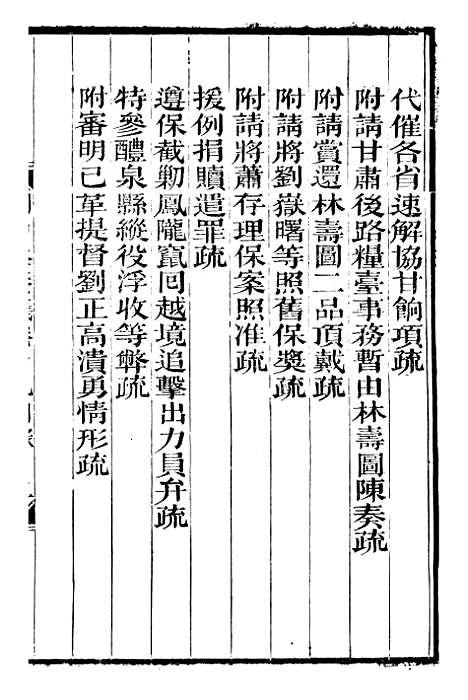 代催各省速解協甘餉項疏
附請甘肅後路糧臺事務暫由林壽圖陳奏疏
附請賞還林壽圖二品頂戴疏
附請將劉嶽曙等照舊保獎疏
附請將蕭存理保案照准疏
援例捐贖遣罪疏
遵保截剿鳳隴竄回越境追擊出力員弁疏
特參醴泉縣縱役浮收等弊疏
附審明已革提督劉正高潰勇情形疏